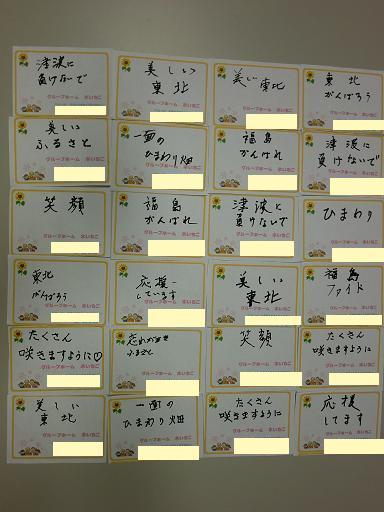 津波に
負けないで
グループホーム 木いちご
美しい
東北
グループホーム 木いちご
美しい東北
グループホーム 木いちご
東北
がんばろう
グループホーム 木いちご
美しい
ふるさと
グループホーム 木いちご
一面の
ひまわり畑
グループホーム 木いちご
福島
がんばれ
グループホーム 木いちご
津波に
負けないで
グループホーム 木いちご
笑顔
グループホーム 木いちご
福島
がんばれ
グループホーム 木いちご
津波に
負けないで
グループホーム 木いちご
ひまわり
グループホーム 木いちご
東北
がんばろう
グループホーム 木いちご
応援
しています
グループホーム 木いちご
美しい
東北
グループホーム 木いちご
福島
ファイト
グループホーム 木いちご
たくさん
咲きますように♡
グループホーム 木いちご
ふるさと
グループホーム 木いちご
笑顔
グループホーム 木いちご
たくさん
咲きますように
グループホーム 木いちご
美しい
東北
グループホーム 木いちご
一面の
ひまわり畑
グループホーム 木いちご
たくさん
咲きますように
グループホーム 木いちご
応援
してます
グループホーム 木いちご